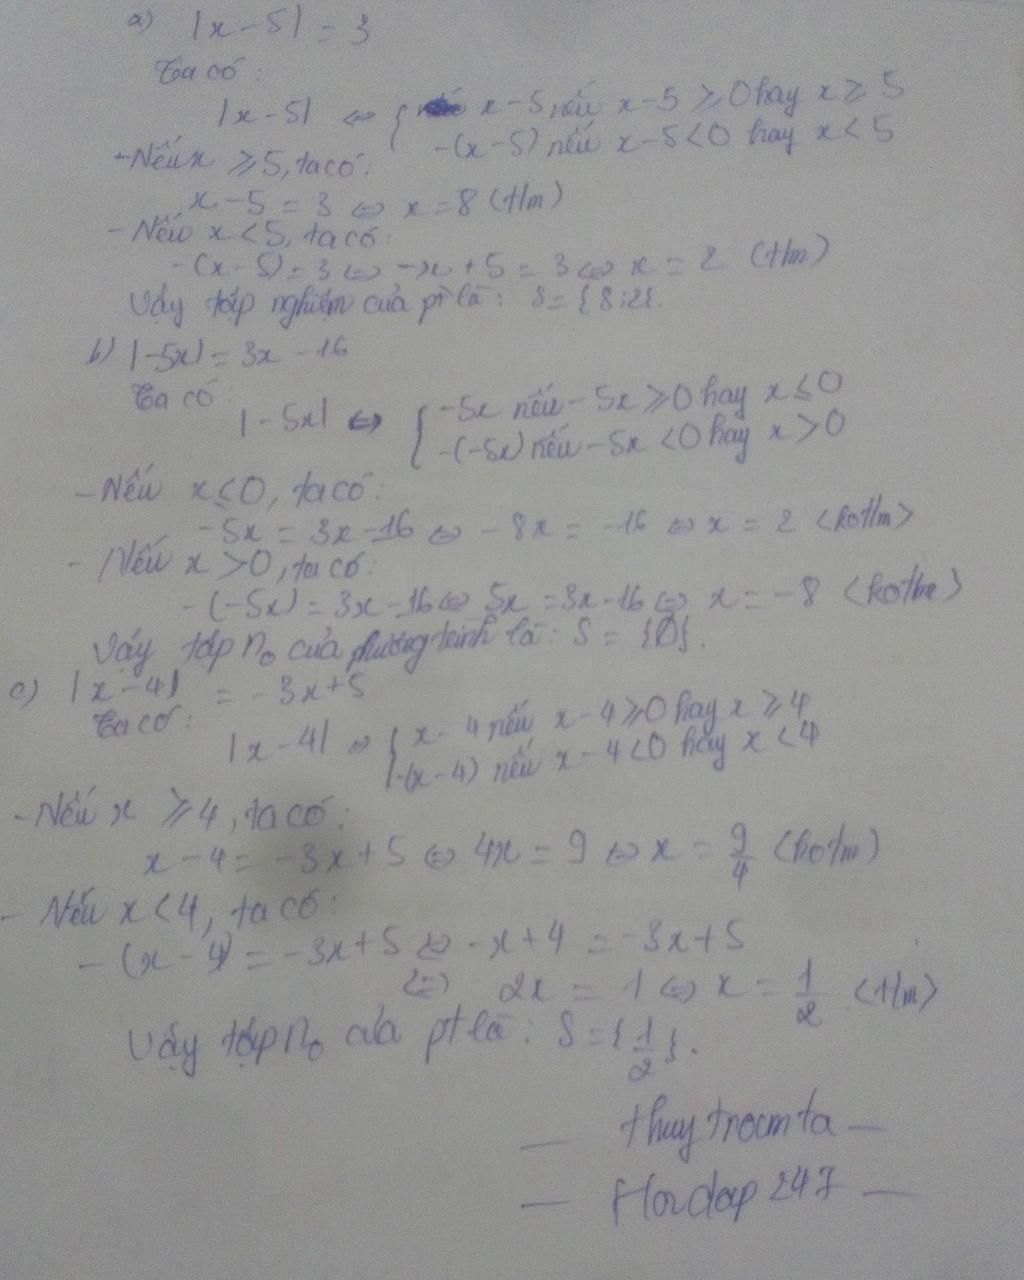 a) |x-5| = 3
Ta có:
|x-5| ⇔ { x-5 nếu x-5 ≥ 0 hay x ≥ 5
-(x-5) nếu x-5 < 0 hay x < 5
- Nếu x ≥ 5, ta có:
x-5 = 3 ⇔ x = 8 (t/m)
- Nếu x < 5, ta có:
-(x-5) = 3 ⇔ -x+5 = 3 ⇔ x = 2 (t/m)
Vậy tập nghiệm của pt là: S = {8;2}.
b) |-5x| = 3x - 16
Ta có:
|-5x| ⇔ { -5x nếu -5x ≥ 0 hay x ≤ 0
-(-5x) nếu -5x < 0 hay x > 0
- Nếu x ≤ 0, ta có:
-5x = 3x-16 ⇔ -8x = -16 ⇔ x = 2 (kot/m)
- Nếu x > 0, ta có:
-(-5x) = 3x-16 ⇔ 5x = 3x-16 ⇔ x = -8 (kot/m)
Vậy tập n₀ của phương trình là: S = {Ø}.
c) |x-4| = -3x+5
Ta có:
|x-4| ⇔ { x-4 nếu x-4 ≥ 0 hay x ≥ 4
-(x-4) nếu x-4 < 0 hay x < 4
- Nếu x ≥ 4, ta có:
x-4 = -3x+5 ⇔ 4x = 9 ⇔ x = 9/4 (kot/m)
- Nếu x < 4, ta có:
-(x-4) = -3x+5 ⇔ -x+4 = -3x+5
⇔ 2x = 1 ⇔ x = 1/2 (t/m)
Vậy tập n₀ của pt là: S = {1/2}.
— thuytrocmta —
— Hoidap 247 —